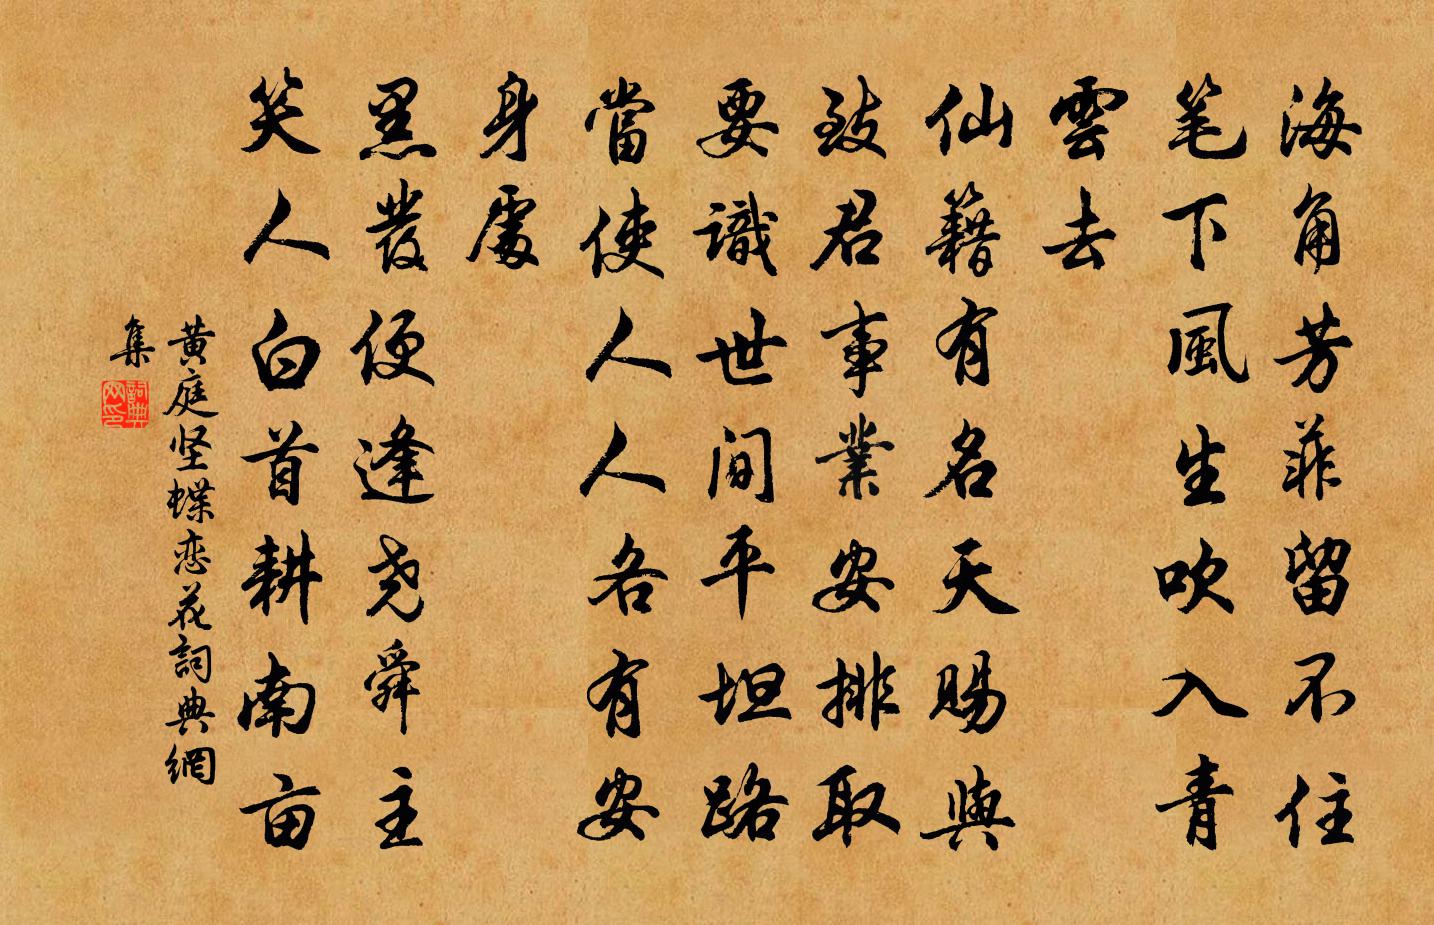 海角芳菲留不住
笔下風生吹入青
雲去
仙籍有名天賜與
致君事業安排取
要識世間平坦路
當使人人各有安
身處
黑發便逢尧舜主
笑人白首耕南亩
黄庭坚蝶恋花詞典網
集
詞典
网印